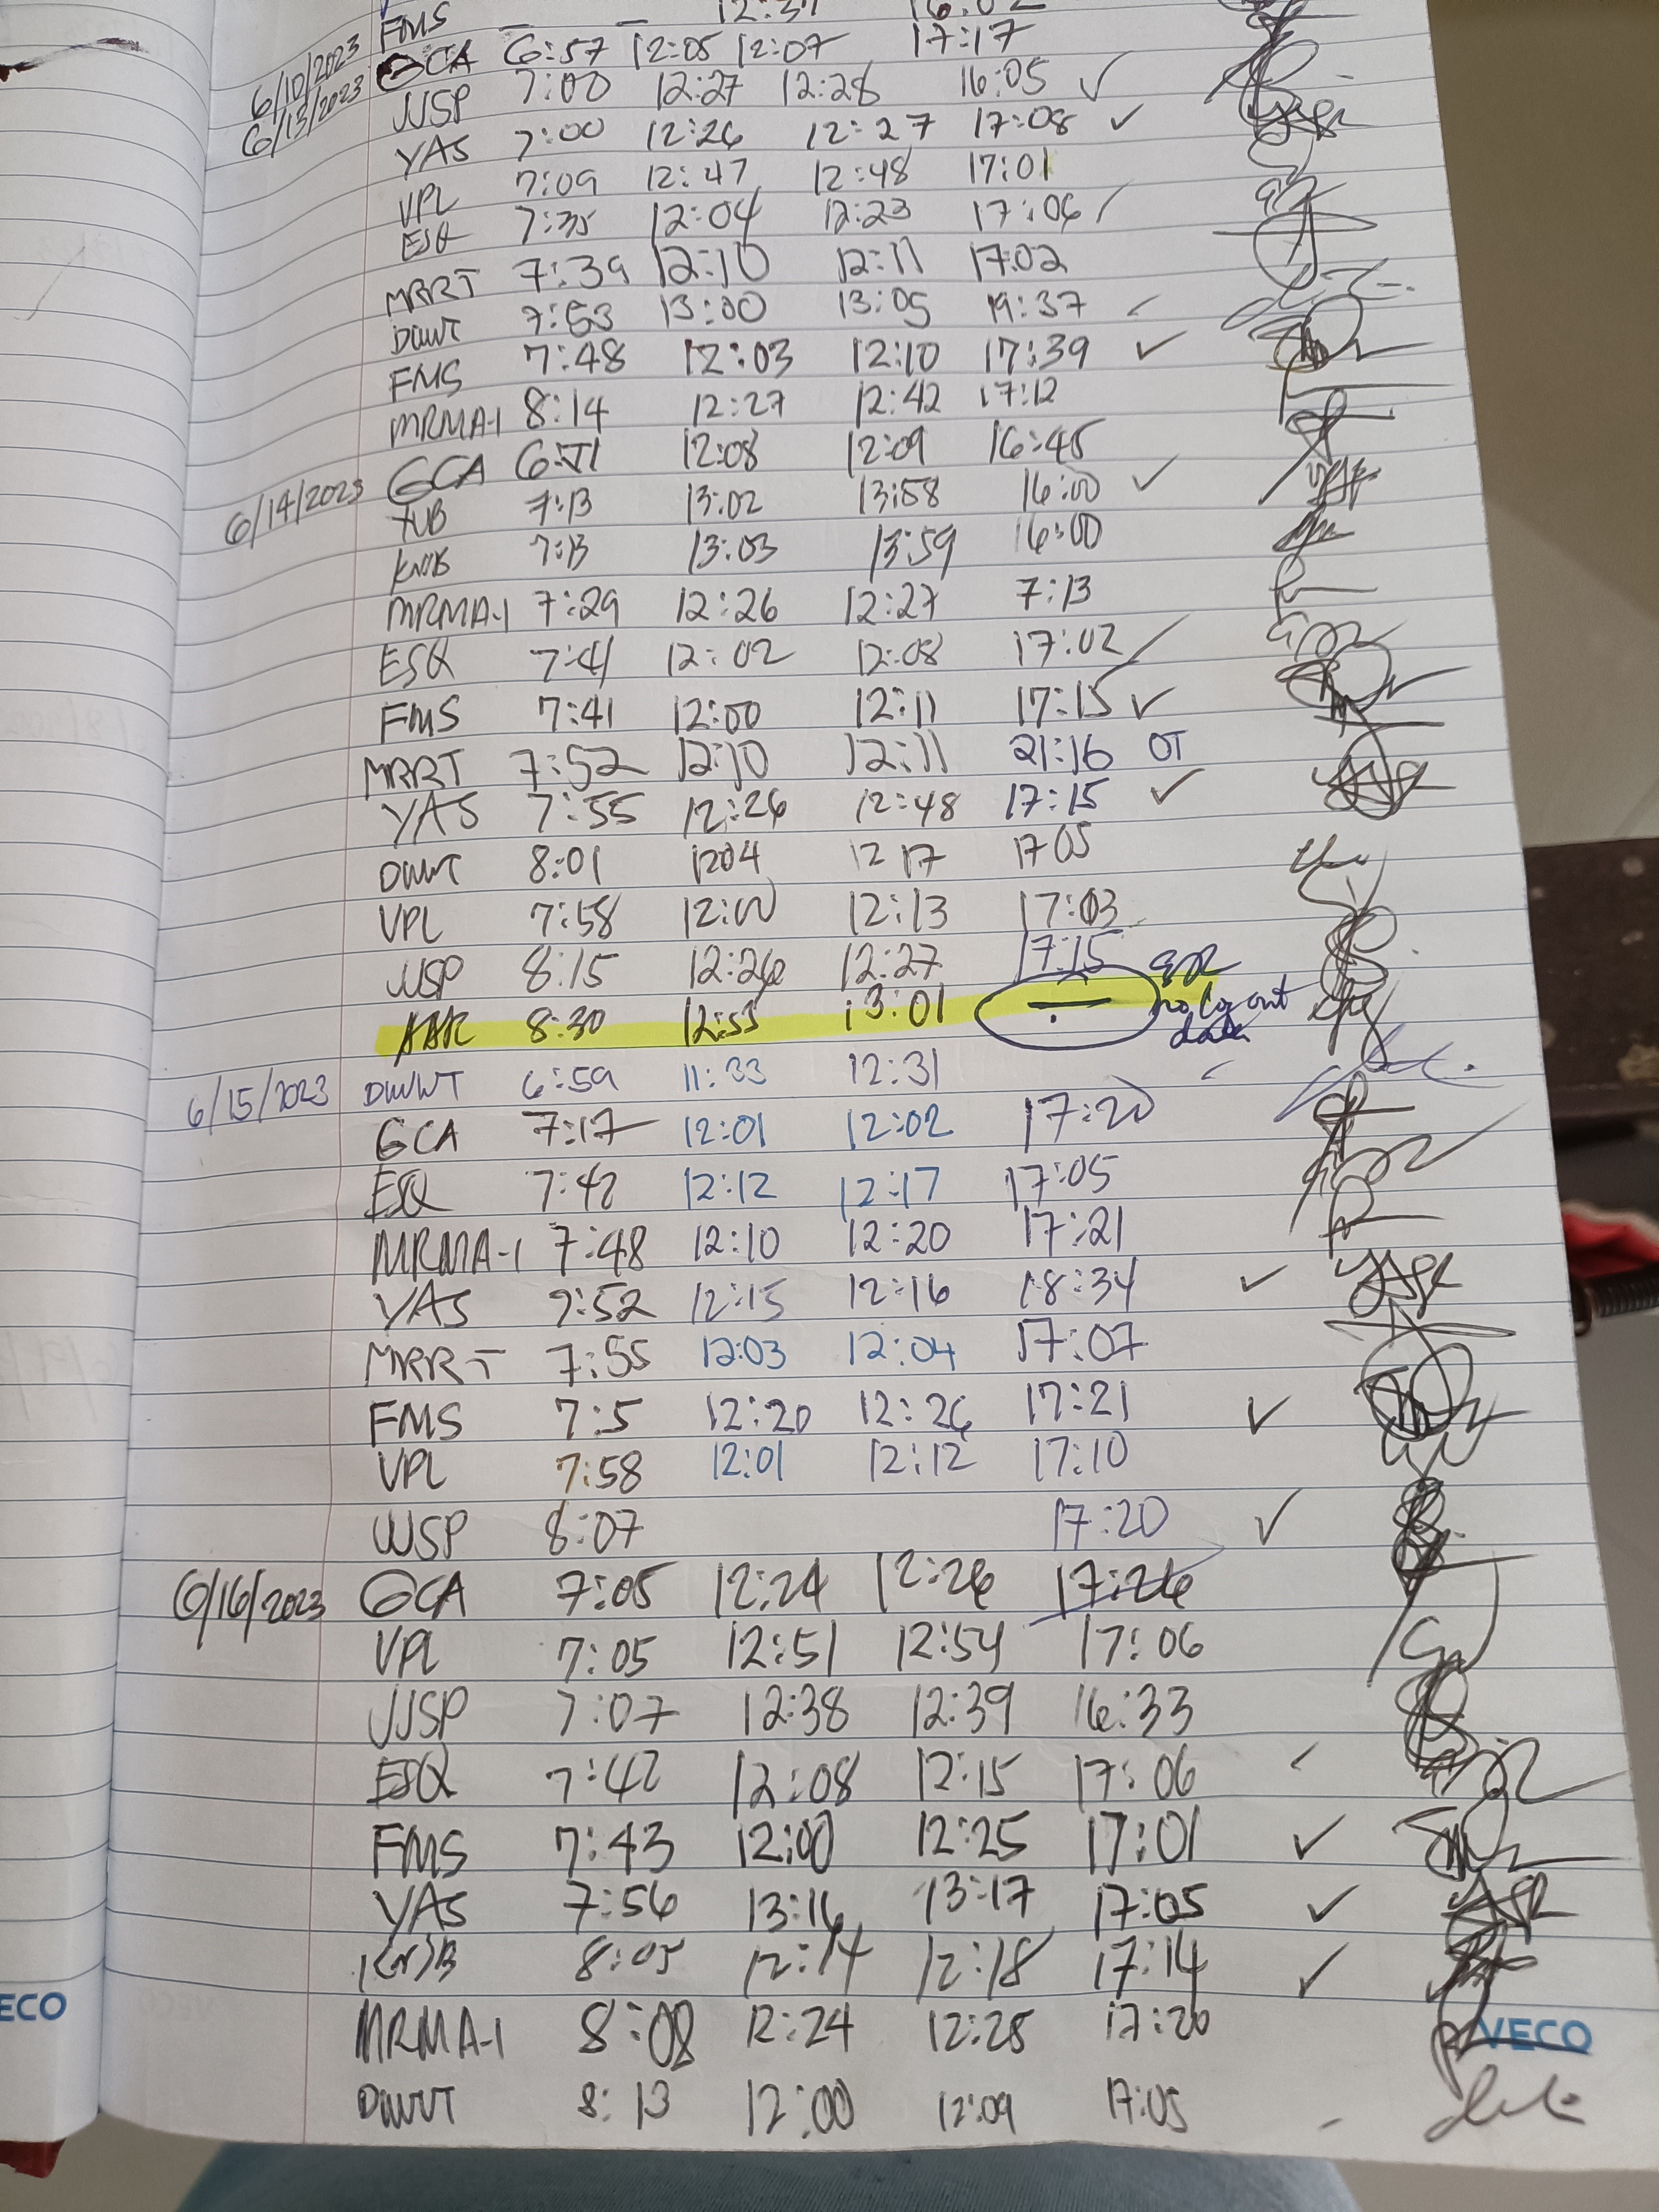 FMS — — 12:37 16:02
6/10/2023 GCA 6:57 12:05 12:07 17:17
6/13/2023 JJSP 7:00 12:27 12:28 16:05 ✓
YAS 7:00 12:26 12:27 17:08 ✓
VPL 7:09 12:47 12:48 17:01
ESQ 7:35 12:04 12:23 17:06
MRRT 7:39 12:10 12:11 17:02
DWWT 7:53 13:00 13:05 19:37
FMS 7:48 12:03 12:10 17:39 ✓
MRMA-1 8:14 12:27 12:42 17:12
6/14/2023 GCA 12:08 12:09 16:45
7:13 13:02 13:58 16:00 ✓
7:13 13:03 13:59 16:00
MRMA-1 7:29 12:26 12:27 7:13
ESQ 7:41 12:02 12:08 17:02
FMS 7:41 12:00 12:11 17:15 ✓
MRRT 7:52 12:10 12:11 21:16 OT
YAS 7:55 12:26 12:48 17:15 ✓
DWWT 8:01 1204 12 17 17 05
VPL 7:58 12:00 12:13 17:03
JJSP 8:15 12:26 12:27 17:15
AAR 8:30 12:53 13:01 — no log out data
6/15/2023 DWWT 6:59 11:33 12:31
GCA 7:17 12:01 12:02 17:20
ESQ 7:42 12:12 12:17 17:05
MRMA-1 7:48 12:10 12:20 17:21
YAS 7:52 12:15 12:16 18:34 ✓
MRRT 7:55 12:03 12:04 17:07
FMS 7:5 12:20 12:26 17:21 ✓
VPL 7:58 12:01 12:12 17:10
JJSP 8:07 17:20 ✓
6/16/2023 GCA 7:05 12:24 12:26 17:26
VPL 7:05 12:51 12:54 17:06
JJSP 7:07 12:38 12:39 16:33
ESQ 7:42 12:08 12:15 17:06
FMS 7:43 12:00 12:25 17:01 ✓
YAS 7:56 13:16 13:17 17:05 ✓
8:05 12:14 12:18 17:14 ✓
MRMA-1 8:08 12:24 12:25 17:20
DWWT 8:13 12:00 12:09 17:05
ECO
VECO